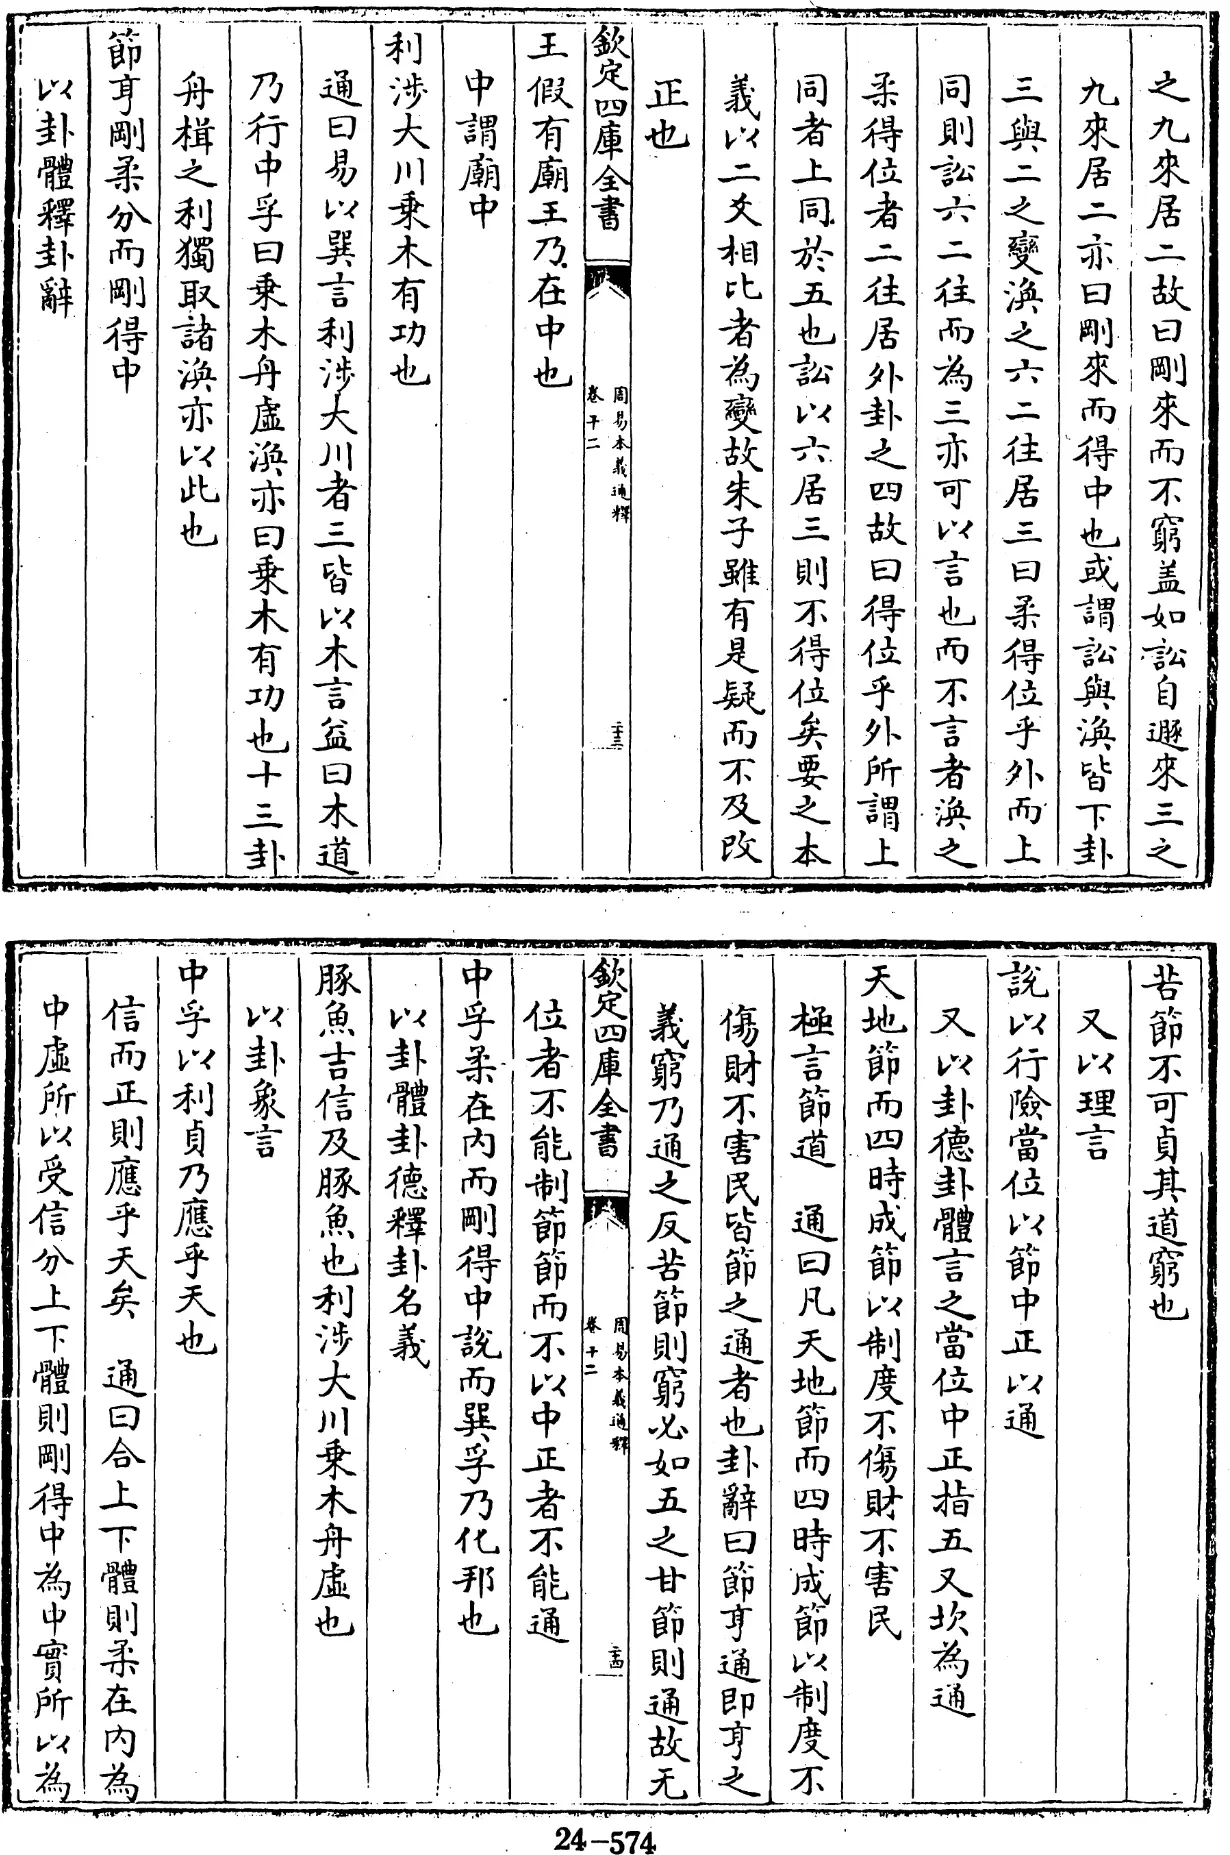 之九來居二故曰剛來而不窮盖如訟自遯來三之
九來居二亦曰剛來而得中也或謂訟與渙皆下卦
三與二之變渙之六二徃居三曰柔得位乎外而上
同則訟六二徃而為三亦可以言也而不言者渙之
柔得位者二徃居外卦之四故曰得位乎外所謂上
同者上同於五也訟以六居三則不得位矣要之本
義以二爻相比者為變故朱子雖有是疑而不及改
正也
欽定四庫全書
周易本義通釋
卷十二
二十三
王假有廟王乃在中也
中謂廟中
利涉大川乗木有功也
通曰易以巽言利涉大川者三皆以木言益曰木道
乃行中孚曰乗木舟虛渙亦曰乗木有功也十三卦
舟楫之利獨取諸渙亦以此也
節亨剛柔分而剛得中
以卦體釋卦辭
苦節不可貞其道窮也
又以理言
說以行險當位以節中正以通
又以卦德卦體言之當位中正指五又坎為通
天地節而四時成節以制度不傷財不害民
極言節道　通曰凡天地節而四時成節以制度不
傷財不害民皆節之通者也卦辭曰節亨通即亨之
義窮乃通之反苦節則窮必如五之甘節則通故无
欽定四庫全書
周易本義通釋
卷十二
二十四
位者不能制節節而不以中正者不能通
中孚柔在内而剛得中說而巽孚乃化邦也
以卦體卦德釋卦名義
豚魚吉信及豚魚也利涉大川乗木舟虛也
以卦象言
中孚以利貞乃應乎天也
信而正則應乎天矣　通曰合上下體則柔在内為
中虛所以受信分上下體則剛得中為中實所以為
24-574